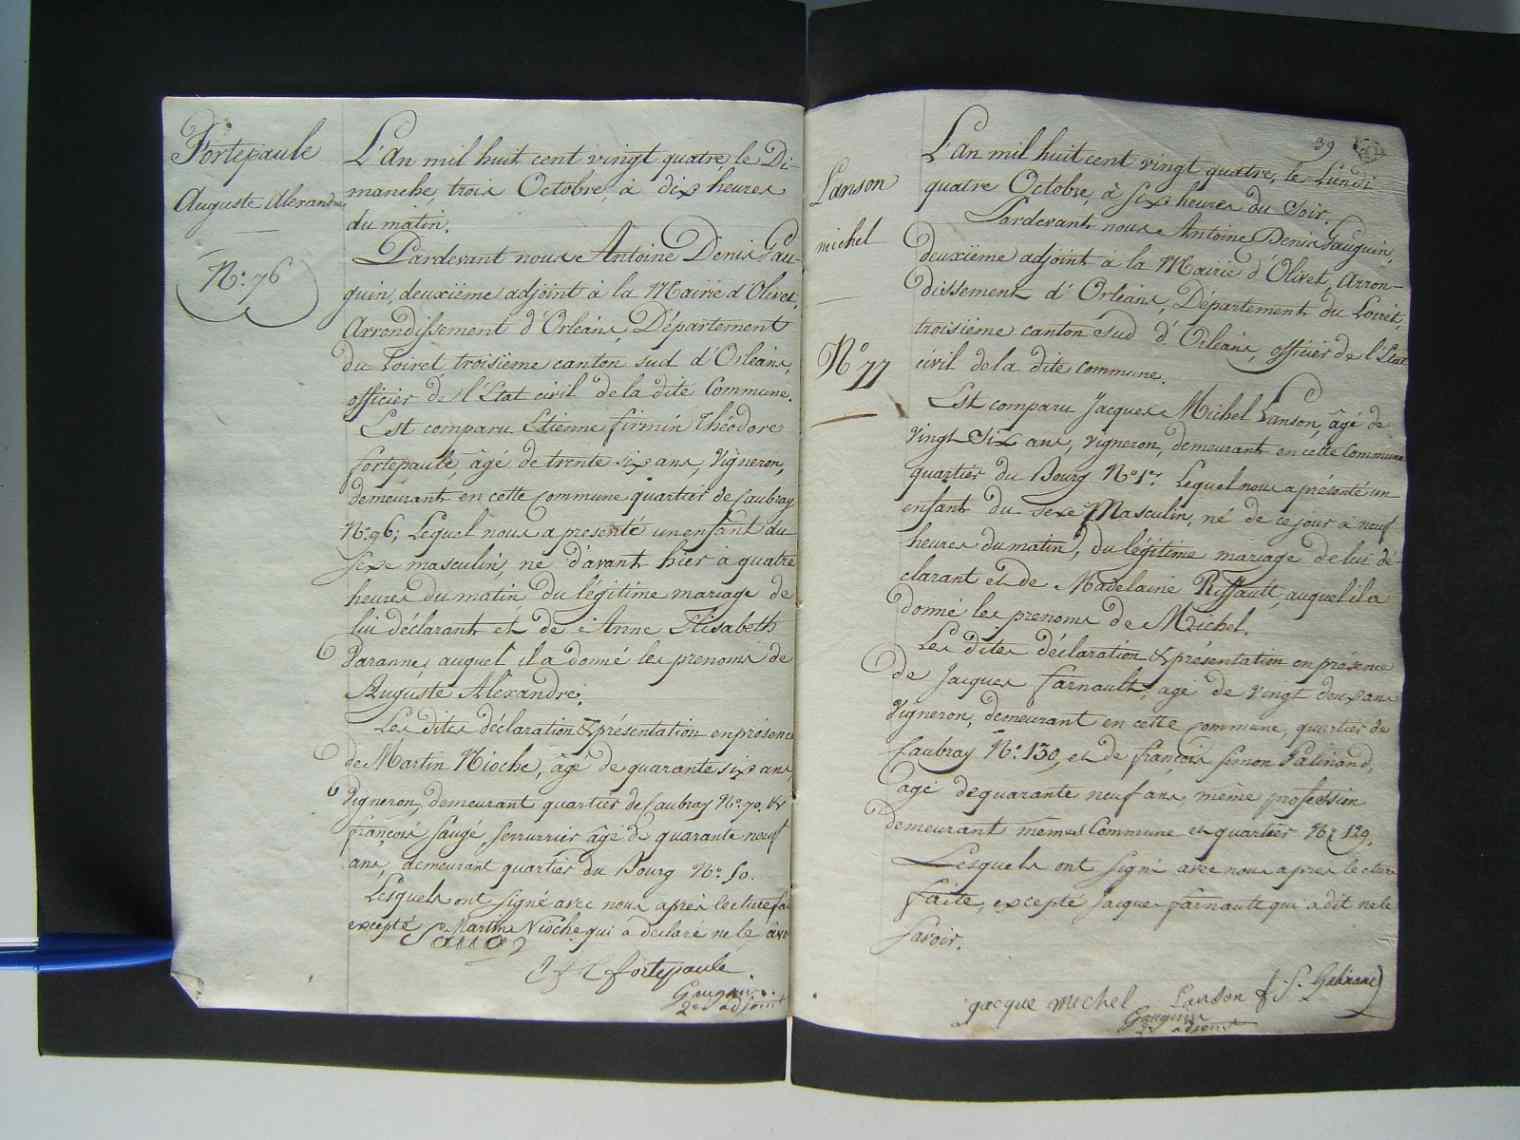 Fortepaule
Auguste Alexandre
N.o 76
L'An mil huit cent vingt quatre, le Di-
manche, trois Octobre, à dix heures
du matin.
Pardevant nous Antoine Denis Gau-
guin, deuxième adjoint à la Mairie d'Olivet,
Arrondissement d'Orléans, Département
du Loiret, troisième canton sud d'Orléans,
officier de l'Etat civil de la dite Commune.
Est comparu Etienne firmin Théodore
fortepaule, âgé de trente six ans, Vigneron,
demeurant en cette Commune quartier de Caubray
N.o 96; Lequel nous a presenté un enfant du
Sexe masculin, né d'avant hier à quatre
heures du matin du légitime mariage de
lui déclarant et de Anne Elisabeth
auquel il a donné les prenoms de
Auguste Alexandre.
Les dites déclaration & présentation en présence
de Martin Nioche, âgé de quarante six ans,
Vigneron, demeurant quartier de Caubray N.o 70. &
françois Saugé, serrurrier âgé de quarante neuf
ans, demeurant quartier du Bourg N.o 50.
Lesquels ont signé avec nous après lecture fai
excepté Martin Nioche qui a déclaré ne le
fortepaule
Gauguin
2e adjoint
39
Lanson
michel
N.o 77
L'an mil huit cent vingt quatre, le Lundi
quatre Octobre, à six heures du Soir.
Pardevant nous Antoine Denis Gauguin,
deuxième adjoint à la Mairie d'Olivet, Arron-
dissement d'Orléans, Département du Loiret,
troisième canton sud d'Orléans, officier de l'Etat
civil de la dite commune.
Est comparu Jacques Michel Lanson, âgé de
vingt six ans, vigneron, demeurant en cette Commune
quartier du Bourg N.o 1.er Lequel nous a présenté un
enfant du sexe Masculin, né de ce jour à neuf
heures du matin, du légitime mariage de lui dé-
clarant et de Madelaine Riffault, auquel il a
donné les prenoms de Michel.
Les dites déclaration & présentation en présence
de Jacques farnault, âgé de vingt deux ans
Vigneron, demeurant en cette commune, quartier de
Caubray N.o 130, et de françois simon Galinand,
âgé de quarante neuf ans, même profession
demeurant mêmes Commune et quartier N.o 129.
Lesquels ont signé avec nous après lecture
faite, excepté Jacques farnault qui a dit ne le
savoir.
jacque michel Lanson
Gauguin
2e adjoint